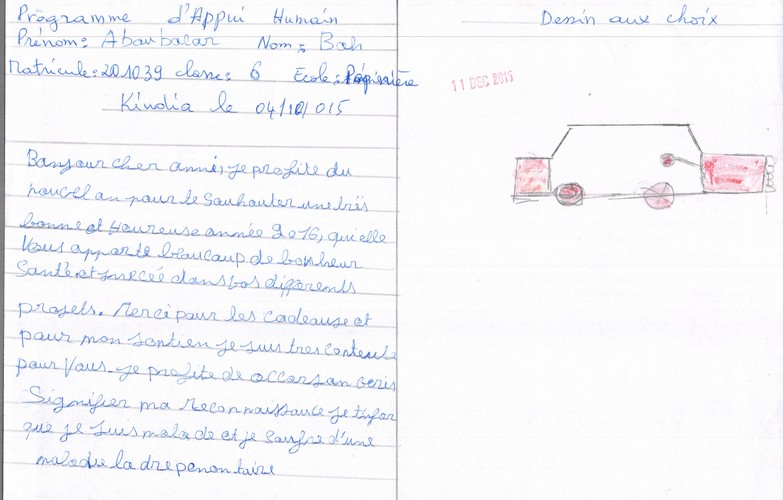 Programme d'Appui Humain
Prénom: Aboubacar Nom: Bah
Matricule: 201039 classe: 6 Ecole: Pépinière
Kindia le 04/10/015
Bonjour cher anni, je profite du
nouvel an pour te Souhaiter une très
bonne et Heureuse année 2016, qu'elle
Vous apporte beaucoup de bonheur
Santé et succeé dans vos differents
projets. Merci pour les cadeause et
pour mon soutien je suis tres contente
pour Vous. je profite de
Signifier ma reconnaissance je
que je suis malade et je Soufre d'une
maladie la drepenontaire
Dessin aux choix
11 DEC 2015